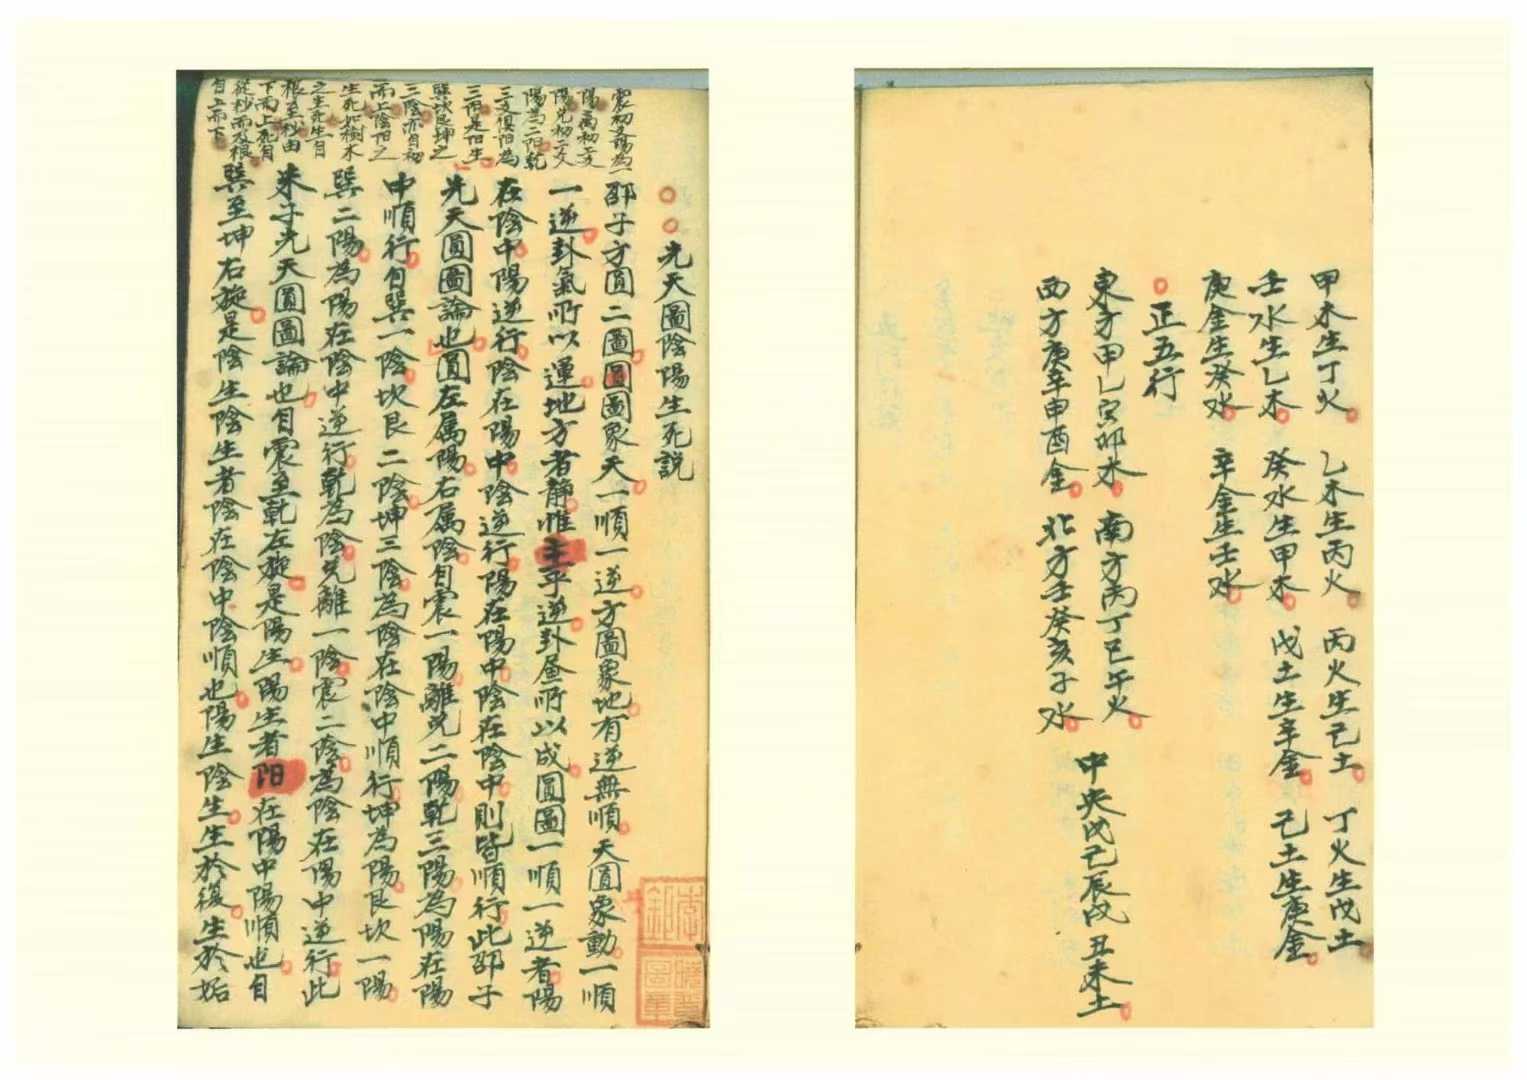 甲木生丁火 乙木生丙火 丙火生己土 丁火生戊土
壬水生乙木 癸水生甲木 戊土生辛金 己土生庚金
庚金生癸水 辛金生壬水
正五行
東方甲乙寅卯木 南方丙丁巳午火 中央戊己辰戌丑未土
西方庚辛申酉金 北方壬癸亥子水
先天圖陰陽生死説
邵子方圓二圖圓圖象天一順一逆方圖象地有逆無順天圓象動一順
一逆卦氣所以運地方者靜惟主乎逆卦昼所以成圓圖一順一逆者陽
在陰中陽逆行陰在陽中陰逆行陽在陽中陰在陰中則皆順行此邵子
先天圓圖論也圓左属陽右属陰自震一陽離兌二陽乾三陽為陽在陽
中順行自巽一陰坎艮二陰坤三陰為陰在陰中順行坤為陽艮坎一陽
巽二陽為陽在陰中逆行乾為陰兌離一陰震二陰為陰在陽中逆行此
朱子先天圓圖論也自震至乾左旋是陽生陽生者阳在陽中陽順也自
巽至坤右旋是陰生陰生者陰在陰中陰順也陽生陰生生於復生於姤
震初爻陽為一
陽离初二爻
陽兌初二爻
陽為二阳乾
三爻俱阳為
三阳是阳生
巽坎艮坤之
三陰亦自初
而上陰阳之
生死如樹木
之生死生自
根至杪由
下而上死自
從杪而及根
自上而下